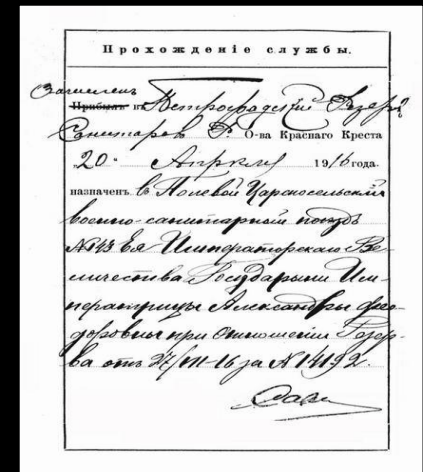 Прохожденіе службы.
Зачисленъ
Прибылъ въ Петроградскій Резервъ
Санитаровъ Р. О-ва Краснаго Креста
„20“ Апрѣля 1916 года.
назначенъ въ Полевой Царскосельскій
военно-санитарный поѣздъ
№143 Ея Императорскаго Ве-
личества Государыни Им-
ператрицы Александры Ѳео-
доровны при отношеніи Резер-
ва отъ 27/III-16 за №14192.